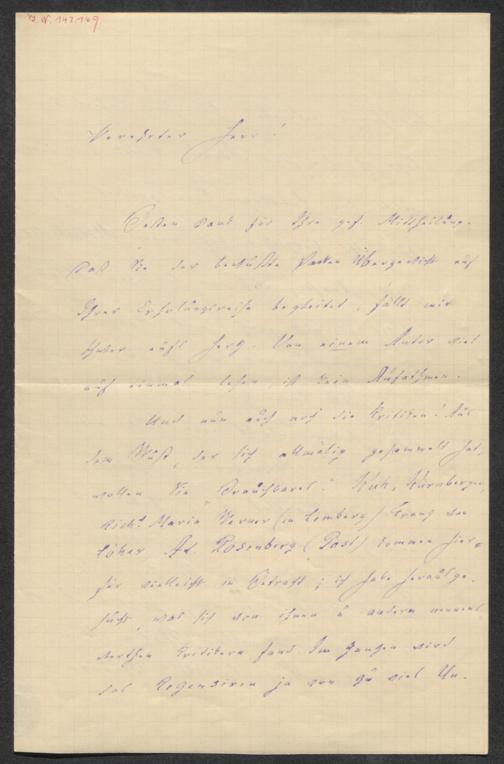 I. N. 147.149
Verehrter Herr!
Besten Dank für Ihre gef. Mittheilung.
Daß Sie der bewußte Packen Übergewicht auf
Ihrer Erholungsreise begleitet, fällt mir
schwer aufs Herz. Von einem Autor viel
auf einmal lesen, ist kein Aufathmen.
Und nun auch noch die Kritiken! Aus
dem Wust, der sich allmälig gesammelt hat,
wollen Sie „Brauchbares“. Kuh, Kürnberger,
Rich. Maria Werner (in Lemberg) Franz von
Löher Ad. Rosenberg (Post) kommen hier=
für vielleicht in Betracht; ich habe herausge-
sucht, was sich von ihnen u andern nennens
werthen Kritikern fand. Im Ganzen wird
das Rezensiren ja von zu viel Un-